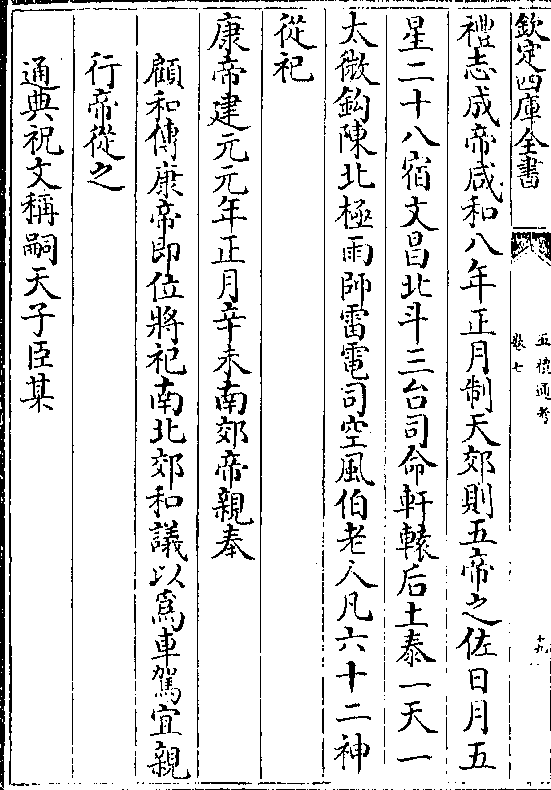 欽定四庫全書
五禮通考
卷七
十九
禮志成帝咸和八年正月制天郊則五帝之佐日月五
星二十八宿文昌北斗三台司命軒轅后土泰一天一
太微鈎陳北極雨師雷電司空風伯老人凡六十二神
從祀
康帝建元元年正月辛未南郊帝親奉
顧和傳康帝即位將祀南北郊和議以為車駕宜親
行帝從之
通典祝文稱嗣天子臣某